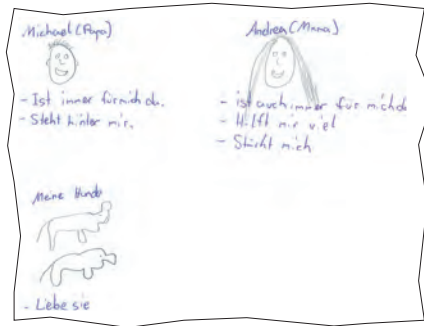 Michael (Papa)
- Ist immer für mich da.
- Steht hinter mir.
Andrea (Mama)
- ist auch immer für mich da
- Hilft mir viel
- Stärkt mich
Meine Hunde
- Liebe sie